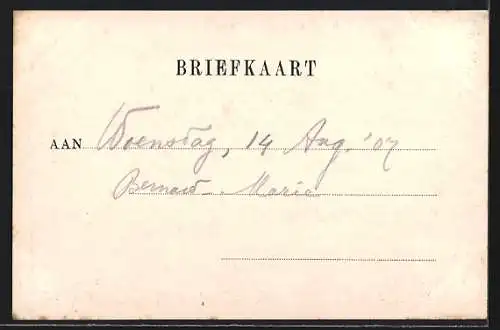 BRIEFKAART
AAN Woensdag, 14 Aug. '07
Bernard - Marie